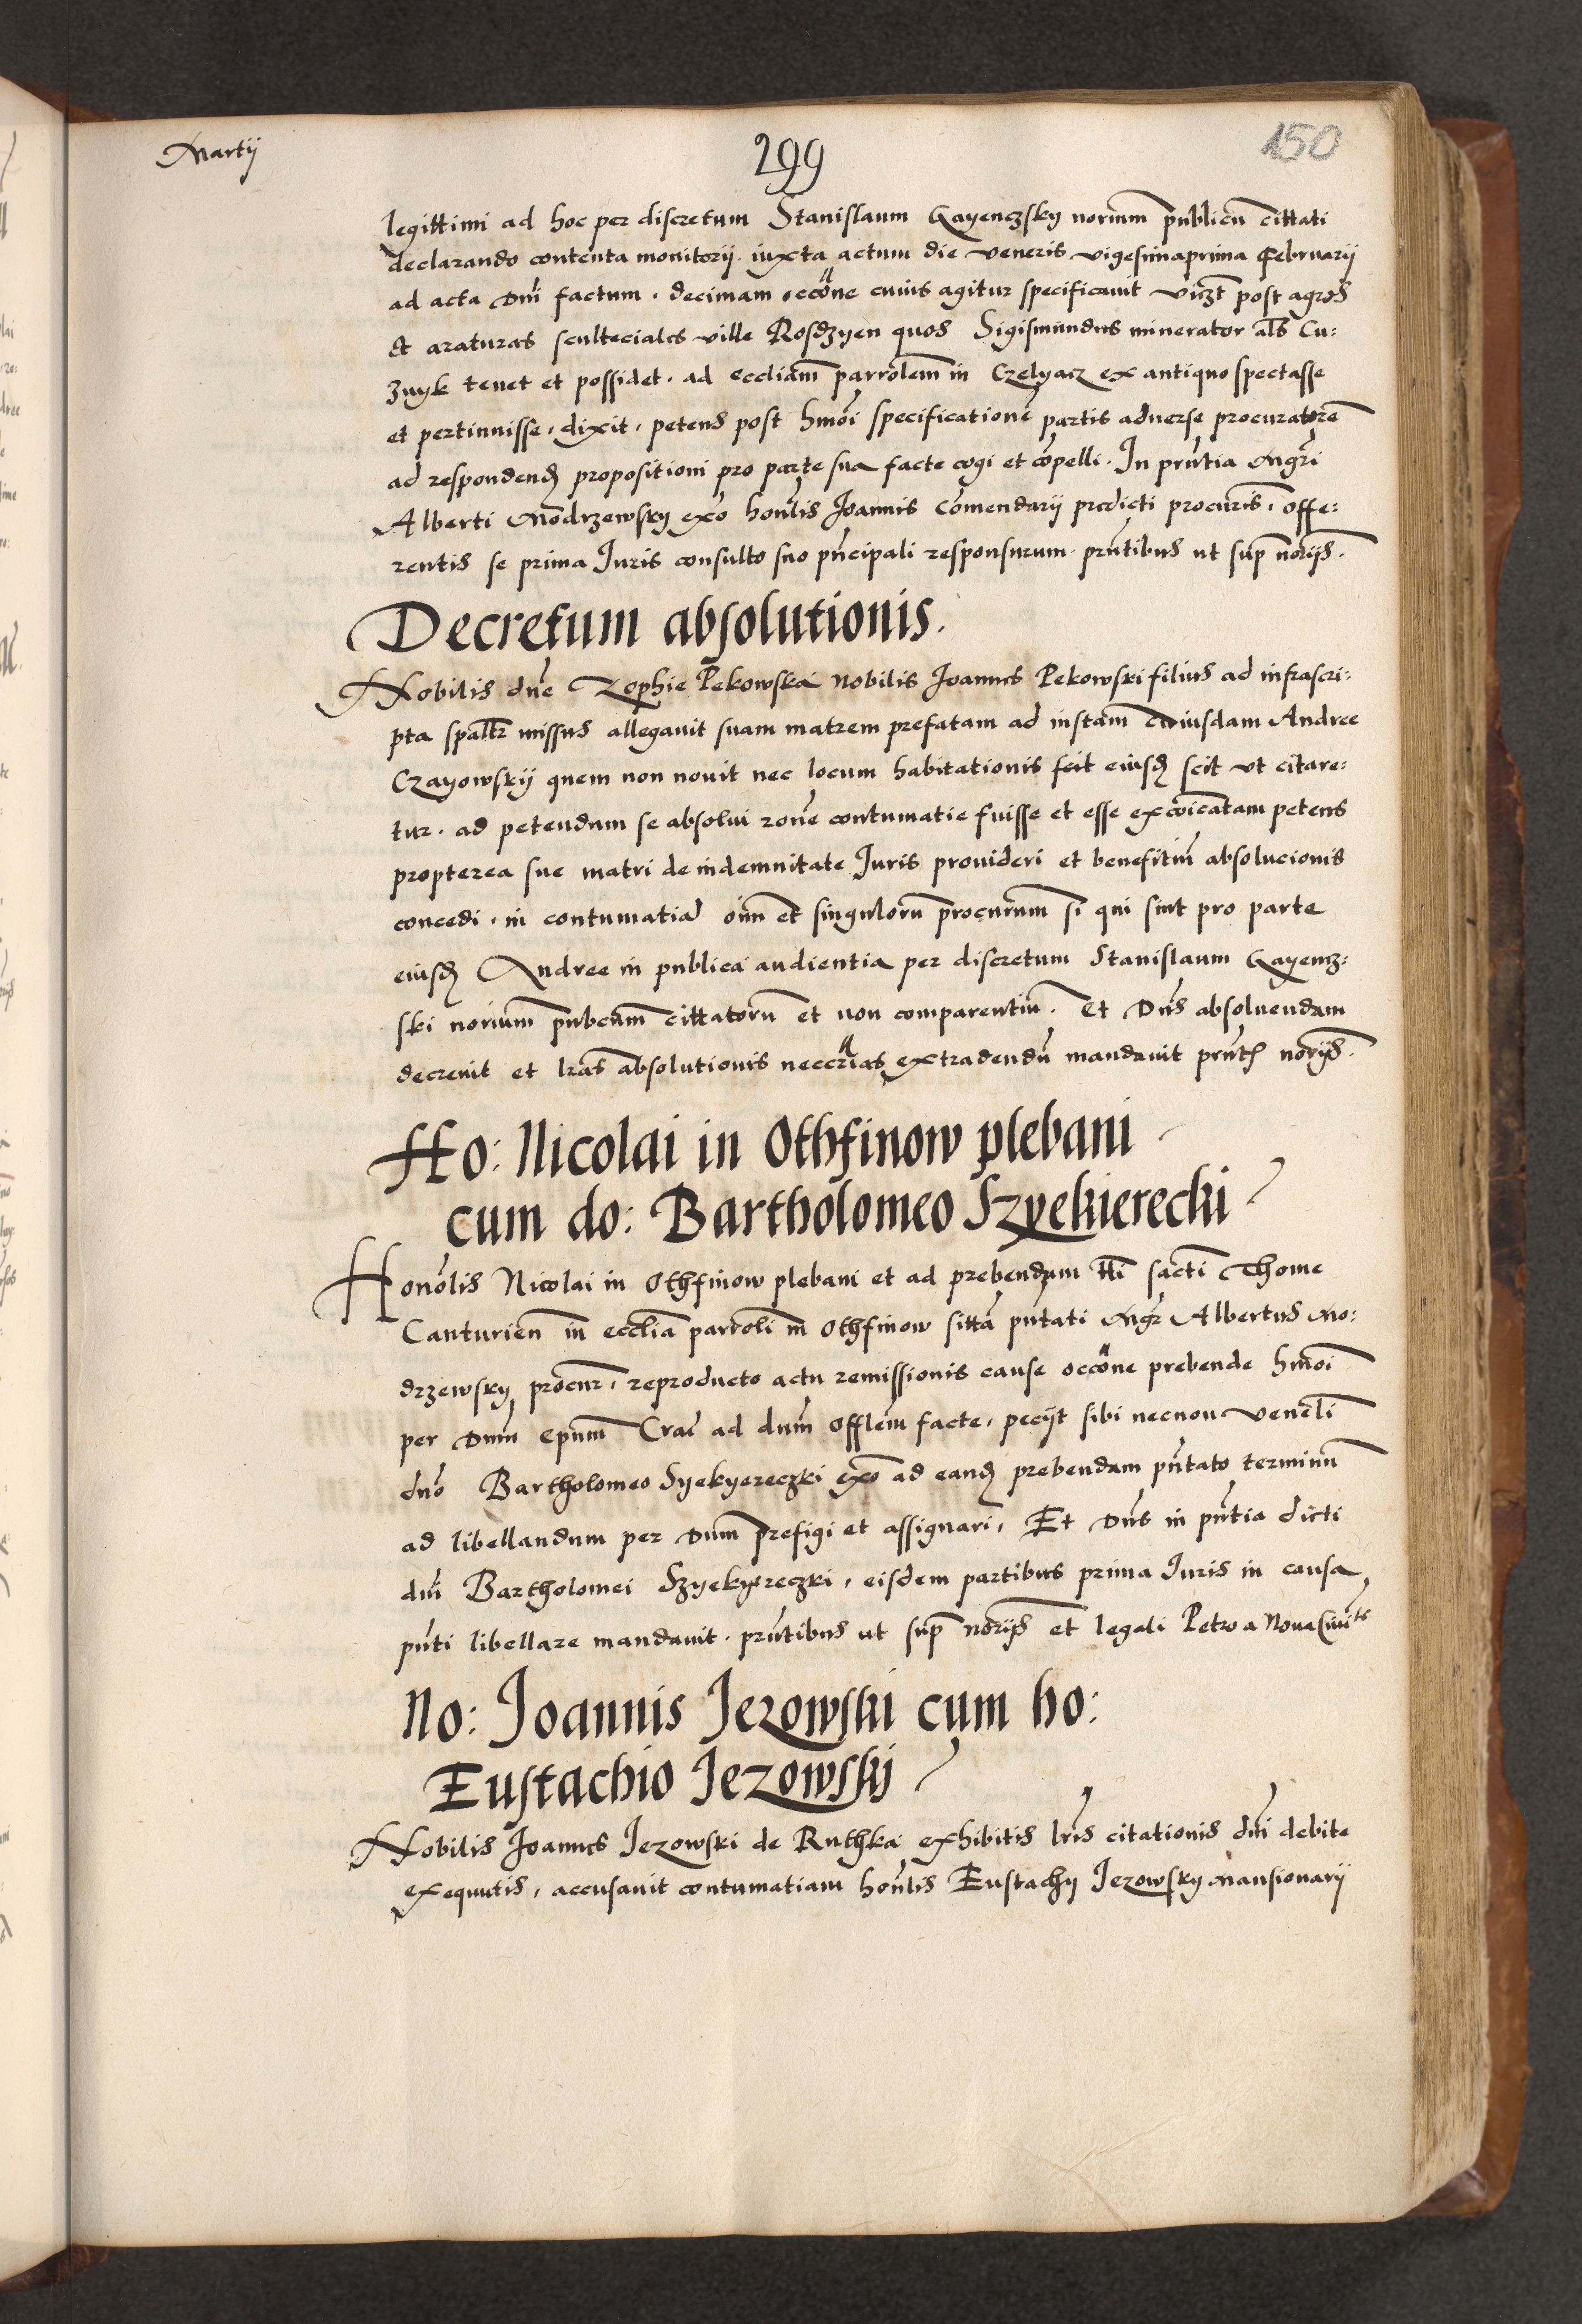 Martij
299
150
legittimi ad hoc per discretum Stanislaum Gayenczsky norium publicu cittati
declarando contenta monitorij. iuxta actum die veneris vigesimaprima Februarij
ad acta Dni factum. decimam occone cuius agitur specificavit vidzt post agros
et araturas sculteciales ville Rosdzyen quos Sigismundus minerator als Cu:
zuyk tenet et possidet. ad eccliam parrolem in Czelyacz ex antiquo spectasse
et pertinuisse, dixit, petens post hmoi specificatione partis adverse procuratore
ad respondend propositioni pro parte sua facte cogi et copelli. In pntia Mgri
Alberti Modrzewsky exo honlis Joannis Comendarij predicti procuris, offe:
rentis se prima Iuris consulto suo pncipali responsurum. pntibus ut sup norijs.
Decretum absolutionis.
Nobilis dne Zophie Pekowska Nobilis Joannes Pekowski filius ad infrascri:
pta spaltr missus allegavit suam matrem prefatam ad instam cuiusdam Andree
Czayowskij quem non novit nec locum habitationis scit eiusd scit ut citare:
tur. ad petendum se absolvi rone contumatie fuisse et esse excoicatam petens
propterea sue matri de indemnitate Iuris provideri et benefitiu absolucionis
concedi. in contumatia oim et singuloru procurum si qui sint pro parte
eiusd Andree in publica audientia per discretum Stanislaum Gayencz:
ski norium pubcum cittatoru et non comparentiu. Et Dns absolvendam
decrevit et lras absolutionis neccrias extradendu mandavit pnt norijs.
Ho: Nicolai in Othfinow plebani
cum do: Bartholomeo Szyekierecki
Honolis Nicolai in Othfinow plebani et ad prebendam tti sacti Thome
Canturien in ecclia parroli in Othfinow sitta pntati Mgr Albertus Mo:
drzewsky procur, reproducto actu remissionis cause occone prebende hmoi
per Dnum Epum Crac ad dnum Offlem facte, pecijt sibi necnon Venli
dno Bartholomeo Syekyereczki exo ad eand prebendam pntato terminu
ad libellandum per Dnum prefigi et assignari, Et Dns in pntia dicti
dni Bartholomei Szyekyereczki, eisdem partibus prima Iuris in causa
pnti libellare mandavit. pntibus ut sup norijs et legali Petro a Nova Civite
No: Joannis Jezowski cum ho:
Eustachio Jezowski
Nobilis Joannes Jezowski de Ruthka exhibitis lris citationis dni debite
exequutis, accusavit contumatiam honlis Eustachij Jezowsky mansionarij